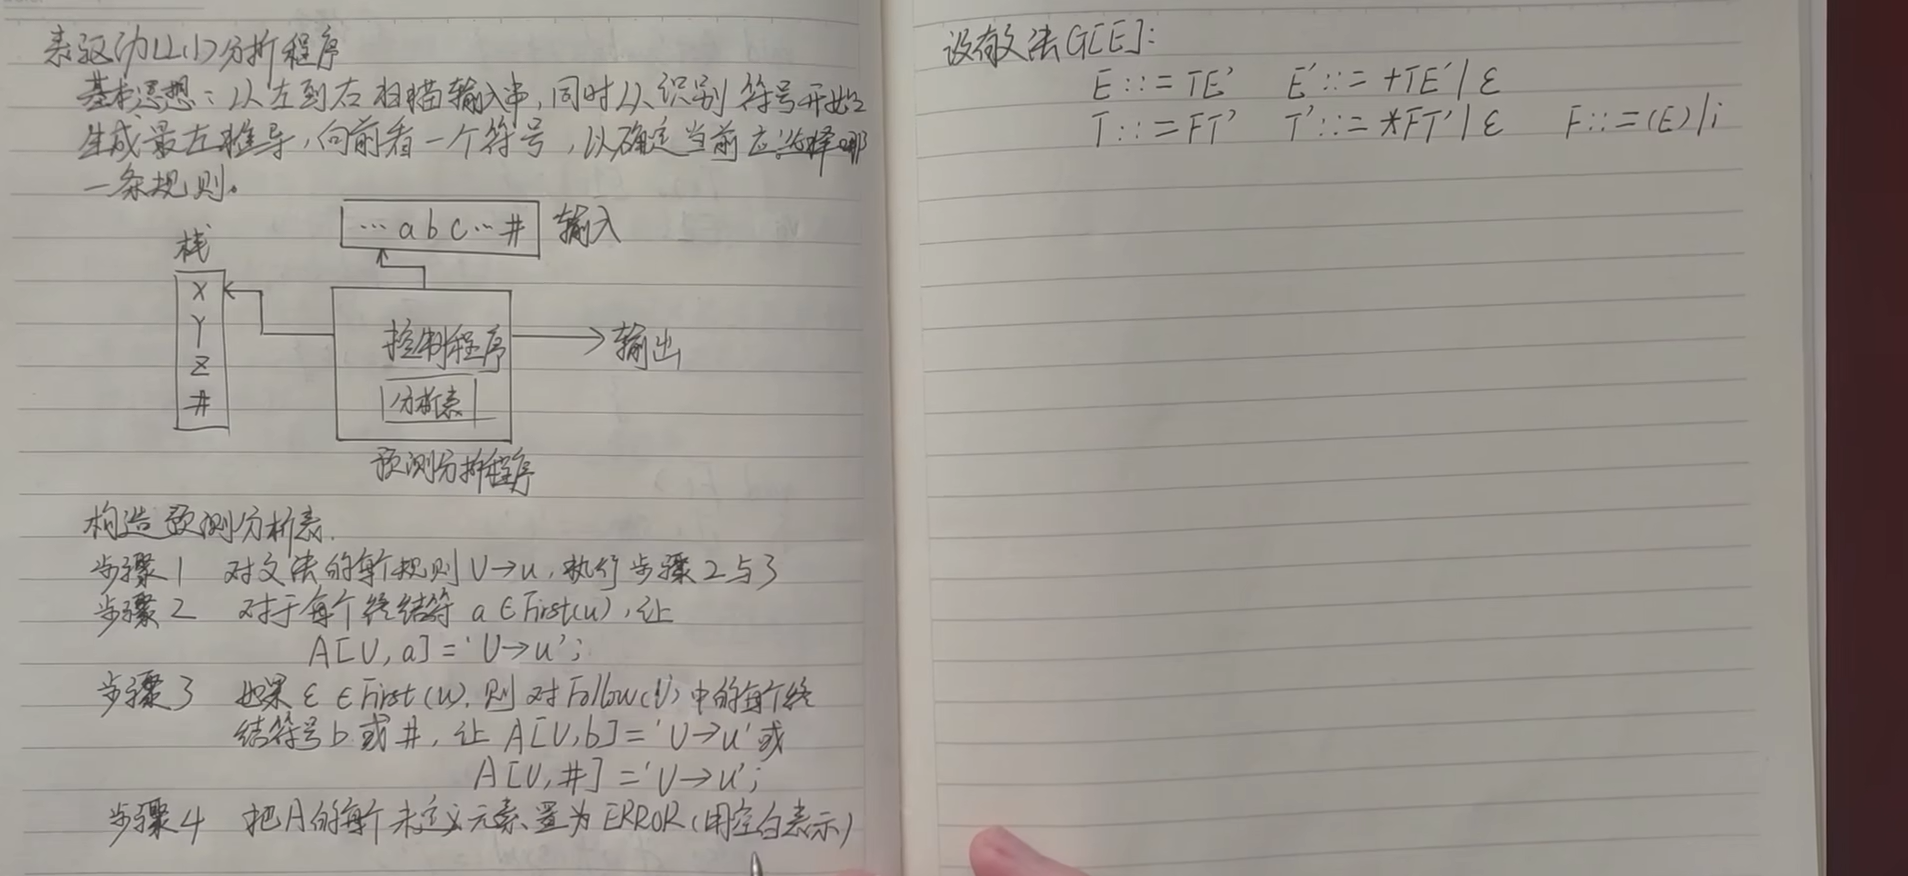 表驱动LL(1)分析程序
基本思想：从左到右扫描输入串，同时从识别符号开始
生成最左推导，向前看一个符号，以确定当前应选择哪
一条规则。
…abc…# 输入
栈
X
Y
Z
#
控制程序
分析表
输出
预测分析程序
构造预测分析表.
步骤1 对文法的每个规则U→u，执行步骤2与3
步骤2 对于每个终结符 a∈First(u)，让
A[U,a]='U→u';
步骤3 如果 ε∈First(u)，则对Follow(U)中的每个终
结符号b或#，让 A[U,b]='U→u'或
A[U,#]='U→u';
步骤4 把A的每个未定义元素置为ERROR(用空白表示)
设有文法G[E]:
E::=TE' E'::=+TE'|ε
T::=FT' T'::=*FT'|ε F::=(E)|i